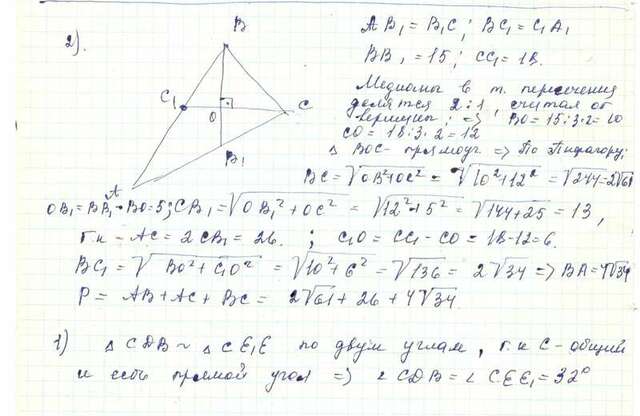 2).
B
C₁
O
C
B₁
A
AB₁ = B₁C; BC₁ = C₁A₁
BB₁ = 15; CC₁ = 18.
Медианы в т. пересечения
делятся 2:1, считая от
вершин; => BO = 15:3·2 = 10
CO = 18:3·2 = 12
△ BOC - прямоуг => По Пифагору:
BC = √OB²+OC² = √10²+12² = √244 = 2√61
OB₁ = BB₁ - BO = 5; CB₁ = √OB₁²+OC² = √12²+5² = √144+25 = 13,
т.к - AC = 2CB₁ = 26. ; C₁O = CC₁ - CO = 18-12 = 6.
BC₁ = √BO²+C₁O² = √10²+6² = √136 = 2√34 => BA = 4√34
P = AB + AC + BC = 2√61 + 26 + 4√34
1) △ CDB ~ △ CE₁E по двум углам, т.к C - общий
и есть прямой угол => ∠ CDB = ∠ CEE₁ = 32°